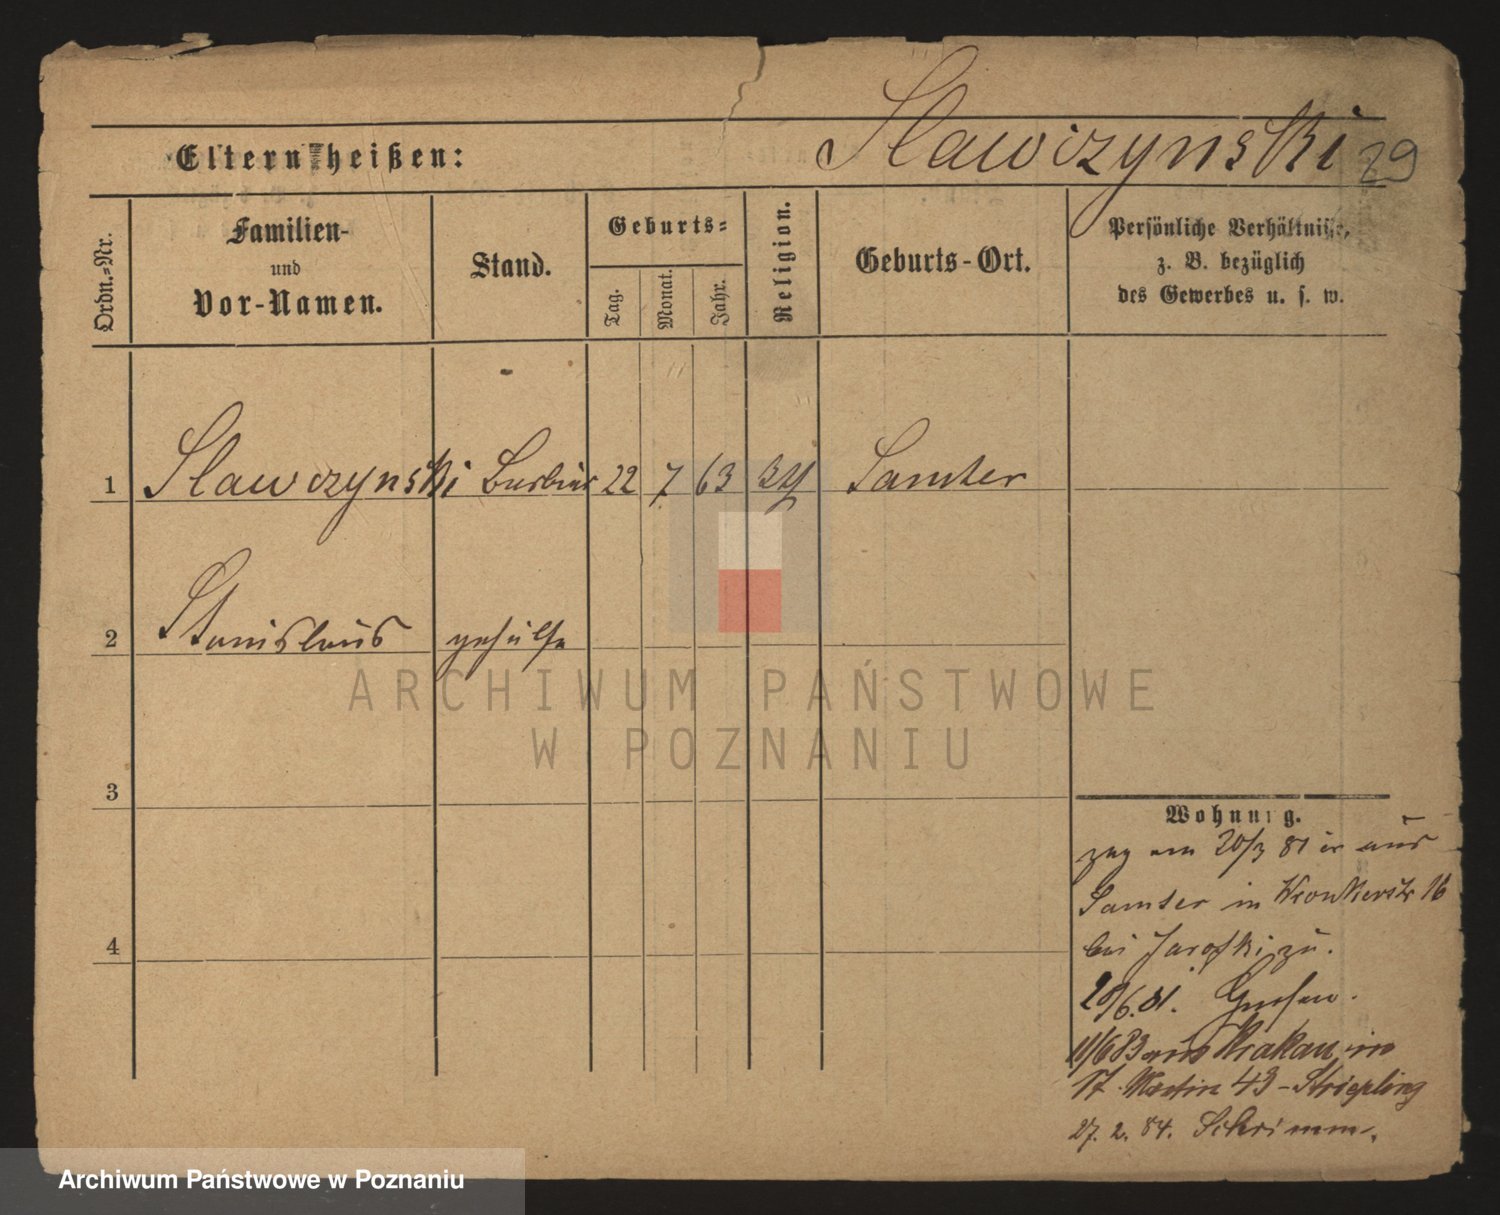 Slawczynski 29
Eltern heißen:
Ordn.=Nr.
Familien-
und
Vor-Namen.
Stand.
Geburts=
Tag.
Monat.
Jahr.
Religion.
Geburts-Ort.
Persönliche Verhältnisse,
z. B. bezüglich
des Gewerbes u. s. w.
1 Slawczynski Barbier 22 7 63 Samter
2 Stanislaus gehülfe
ARCHIWUM PAŃSTWOWE
W POZNANIU
3
Wohnung.
zug am 20/3 81 aus
Samter in Wronkerstr 16
bei Jarofki zu.
20/6.81. Gnesen.
11/6 83 aus Krakau in
St. Martin 43 - Striepling
4
27. 2. 84. Schrimm.
Archiwum Państwowe w Poznaniu